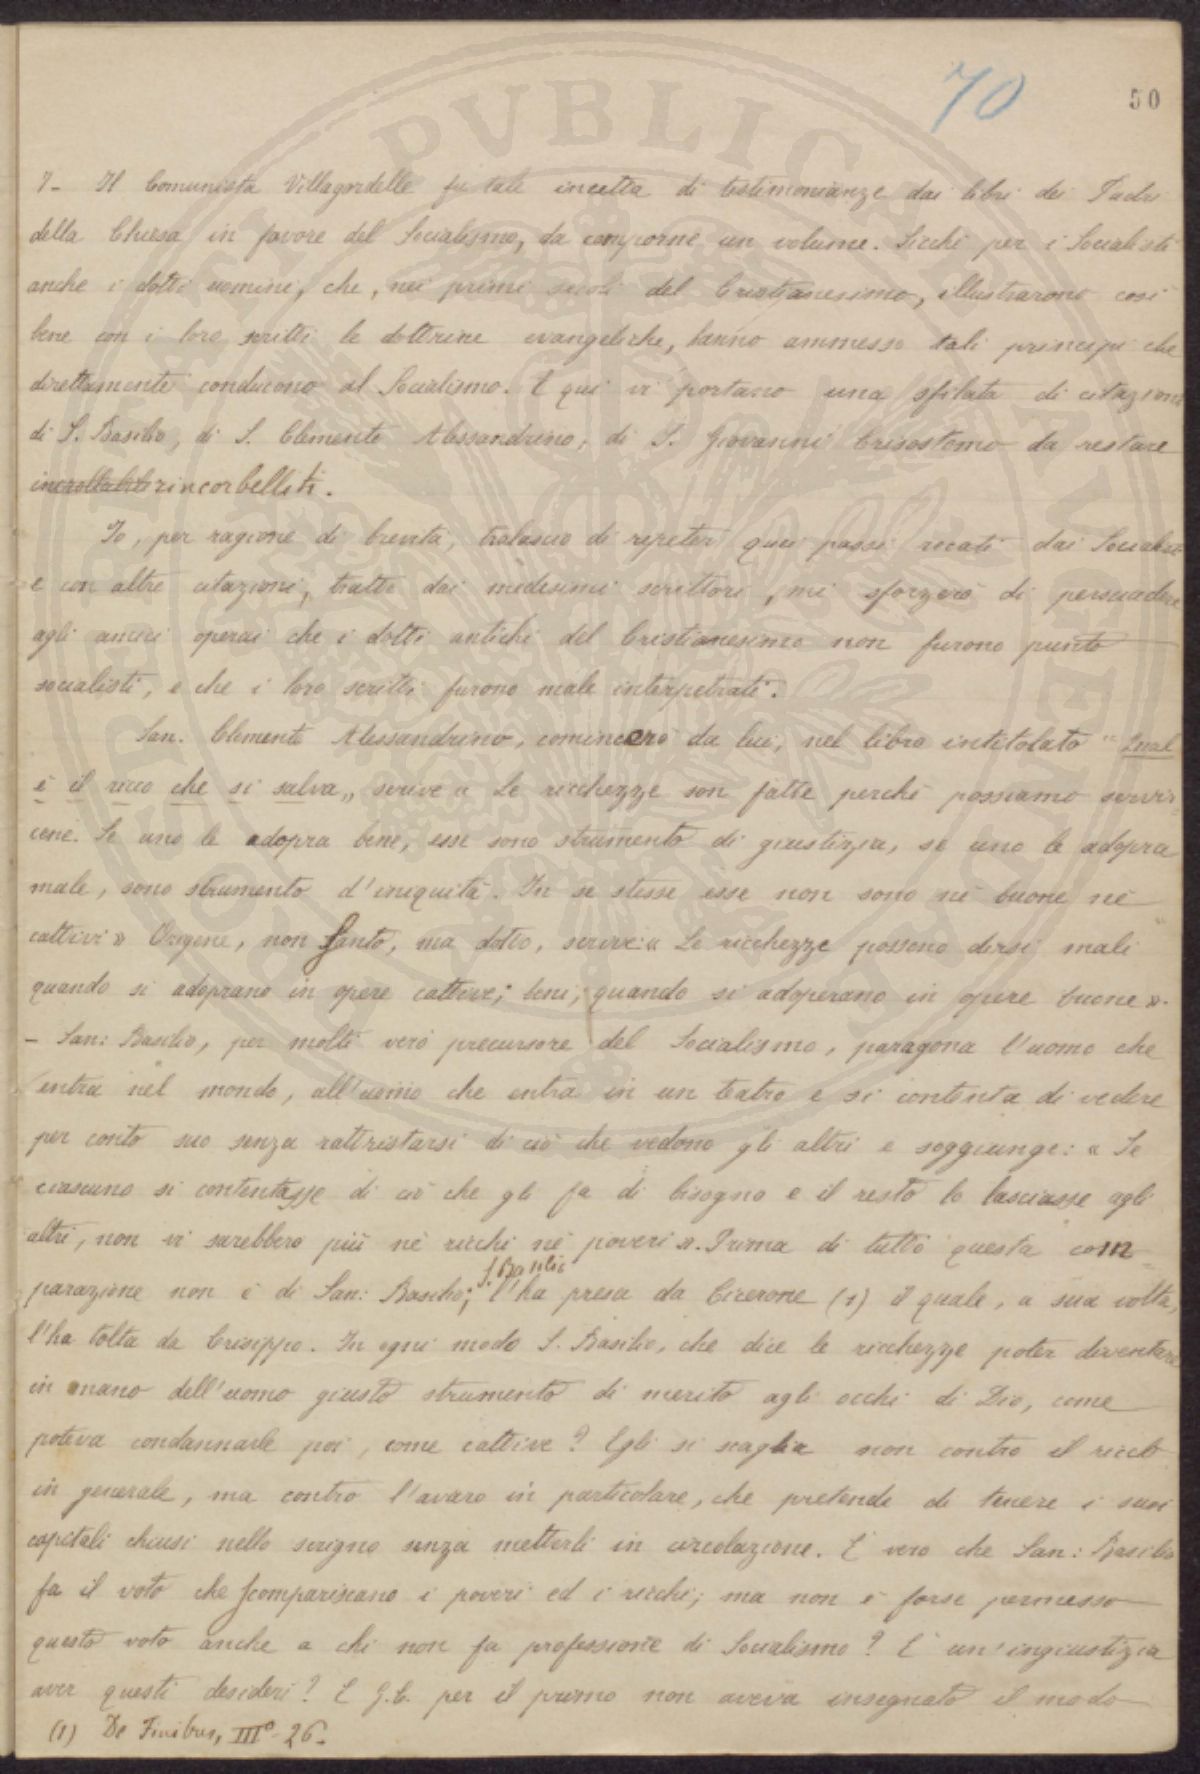 70
50
7- Il Comunista Villagardelle fa tale incetta di testimonianze dai libri dei Padri
della Chiesa in favore del Socialismo, da comporne un volume. Sicchè per i Socialisti
anche i dotti uomini, che, nei primi secoli del Cristianesimo, illustrarono così
bene con i loro scritti le dottrine evangeliche, hanno ammesso tali principi che
direttamente conducono al Socialismo. E qui vi portano una sfilata di citazioni
di S. Basilio, di S. Clemente Alessandrino, di S. Giovanni Crisostomo da restare
rincorbelliti.
Io, per ragione di brevità, tralascio di repeter quei passi recati dai Socialisti
e con altre citazioni, tratte dai medesimi scrittori, mi sforzerò di persuadere
agli amici operai che i dotti antichi del Cristianesimo non furono punto
socialisti, e che i loro scritti furono male interpetrati.
San. Clemente Alessandrino, comincerò da lui, nel libro intitolato "Qual
è il ricco che si salva„ scrive « Le ricchezze son fatte perchè possiamo servir-
cene. Se uno le adopra bene, esse sono strumento di giustizia, se uno le adopra
male, sono strumento d'iniquità. In se stesse esse non sono nè buone nè
cattive» Origene, non Santo, ma dotto, scrive: « Le ricchezze possono dirsi mali
quando si adoprano in opere cattive; beni, quando si adoperano in opere buone ».
- San: Basilio, per molti vero precursore del Socialismo, paragona l'uomo che
entra nel mondo, all'uomo che entra in un teatro e si contenta di vedere
per conto suo senza rattristarsi di ciò che vedono gli altri e soggiunge: « Se
ciascuno si contentasse di ciò che gli fa di bisogno e il resto lo lasciasse agli
altri, non vi sarebbero più nè ricchi nè poveri ». Prima di tutto questa com-
parazione non è di San: Basilio; S. Basilio l'ha presa da Cicerone (1) il quale, a sua volta,
l'ha tolta da Crisippo. In ogni modo S. Basilio, che dice le ricchezze poter diventare
in mano dell'uomo giusto strumento di merito agli occhi di Dio, come
poteva condannarle poi, come cattive? Egli si scaglia non contro il ricco
in generale, ma contro l'avaro in particolare, che pretende di tenere i suoi
capitali chiusi nello scrigno senza metterli in circolazione. È vero che San: Basilio
fa il voto che scompariscano i poveri ed i ricchi; ma non è forse permesso
questo voto anche a chi non fa professione di Socialismo? È un'ingiustizia
aver questi desideri? E G.C. per il primo non aveva insegnato il modo
(1) De Finibus, III° - 26.